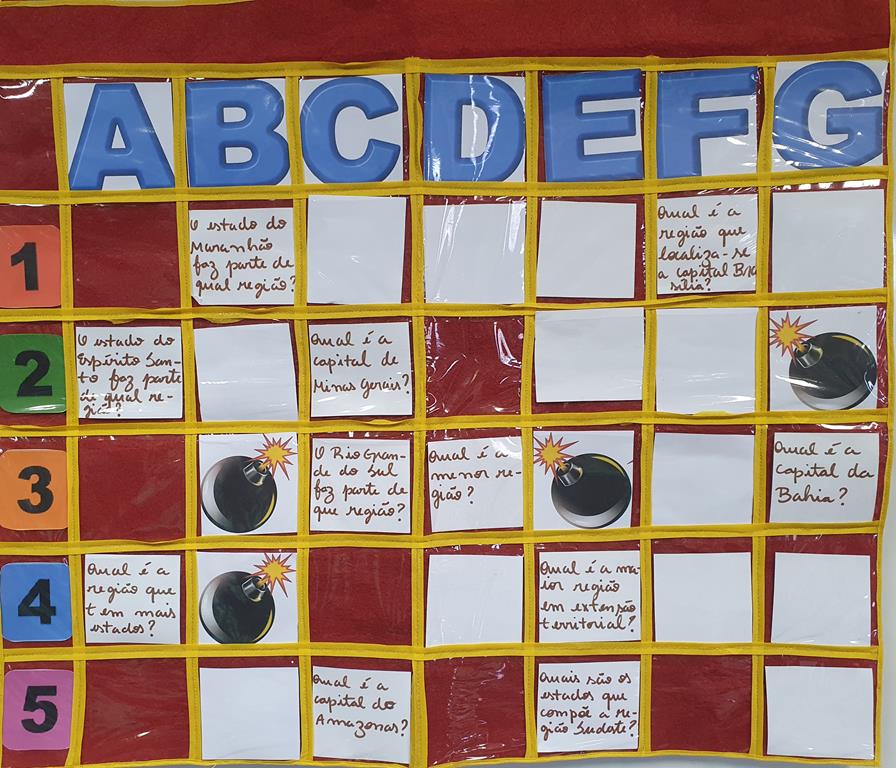 A B C D E F G
1
O estado do
Maranhão
faz parte de
qual região?
Qual é a
região que
localiza-se
a capital Bra
sília?
2
O estado do
Espírito San-
to faz parte
de qual re-
gião?
Qual é a
capital de
Minas Gerais?
3
O Rio Gran-
de do Sul
faz parte de
que região?
Qual é a
menor re-
gião?
Qual é a
capital da
Bahia?
4
Qual é a
região que
tem mais
estados?
Qual é a ma-
ior região
em extensão
territorial?
5
Qual é a
capital do
Amazonas?
Quais são os
estados que
compõe a re-
gião Sudeste?